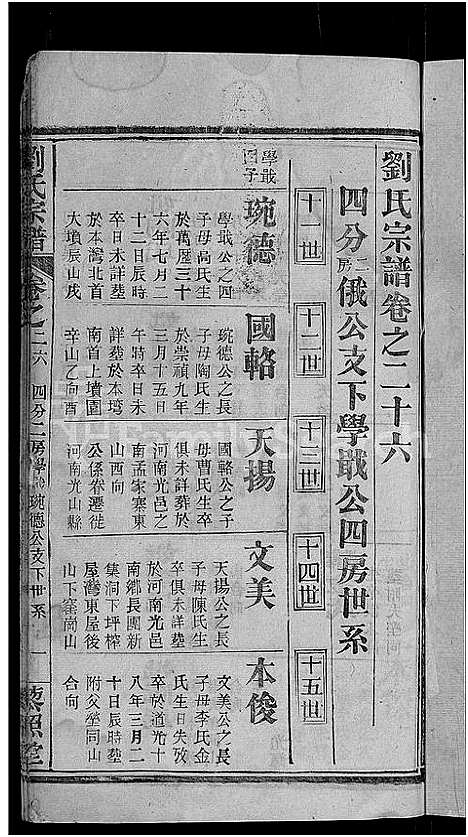 劉氏宗譜卷之二十六
四分二房俄公支下學戢公四房世系
十一世
十二世
十三世
十四世
十五世
學戢四子
琬德
學戢公之四
子母高氏生
於萬歷三十
六年七月二
十二日辰時
卒日未詳塟
於本灣北首
大墳辰山戌
國輅
琬德公之長
子母陶氏生
於崇禎九年
三月十五日
午時卒日未
詳塟於本塆
南首上墳園
辛山乙向酉
天揚
國輅公之子
母曹氏生卒
俱未詳葬於
河南光邑之
南孟家寨東
山西向
公係眷遷徙
河南光山縣
文美
天揚公之長
子母陳氏生
卒俱未詳塟
於河南光邑
南鄉長圍新
集洞下坪榨
屋灣東屋後
山下窯崗山
本俊
文美公之長
子母李氏金
氏生日失攷
卒於道光十
八年三月二
十日辰時塟
附父塋同山
合向
劉氏宗譜
卷之二六
四分二房學戢琬德公支下世系
一
藜照堂